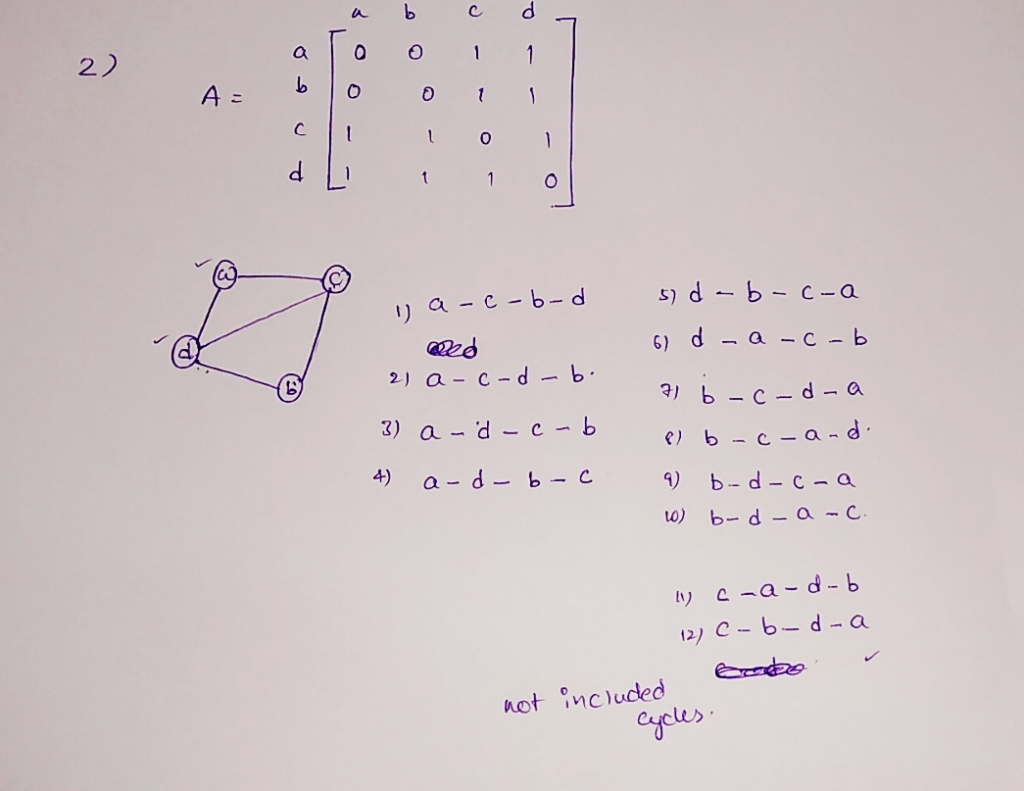 2)
a b c d
A =
a 0 0 1 1
b 0 0 1 1
c 1 1 0 1
d 1 1 1 0
a
c
d
b
1) a - c - b - d
2) a - c - d - b.
3) a - d - c - b
4) a - d - b - c
5) d - b - c - a
6) d - a - c - b
7) b - c - d - a
8) b - c - a - d.
9) b - d - c - a
10) b - d - a - c.
11) c - a - d - b
12) c - b - d - a
not included
cycles.